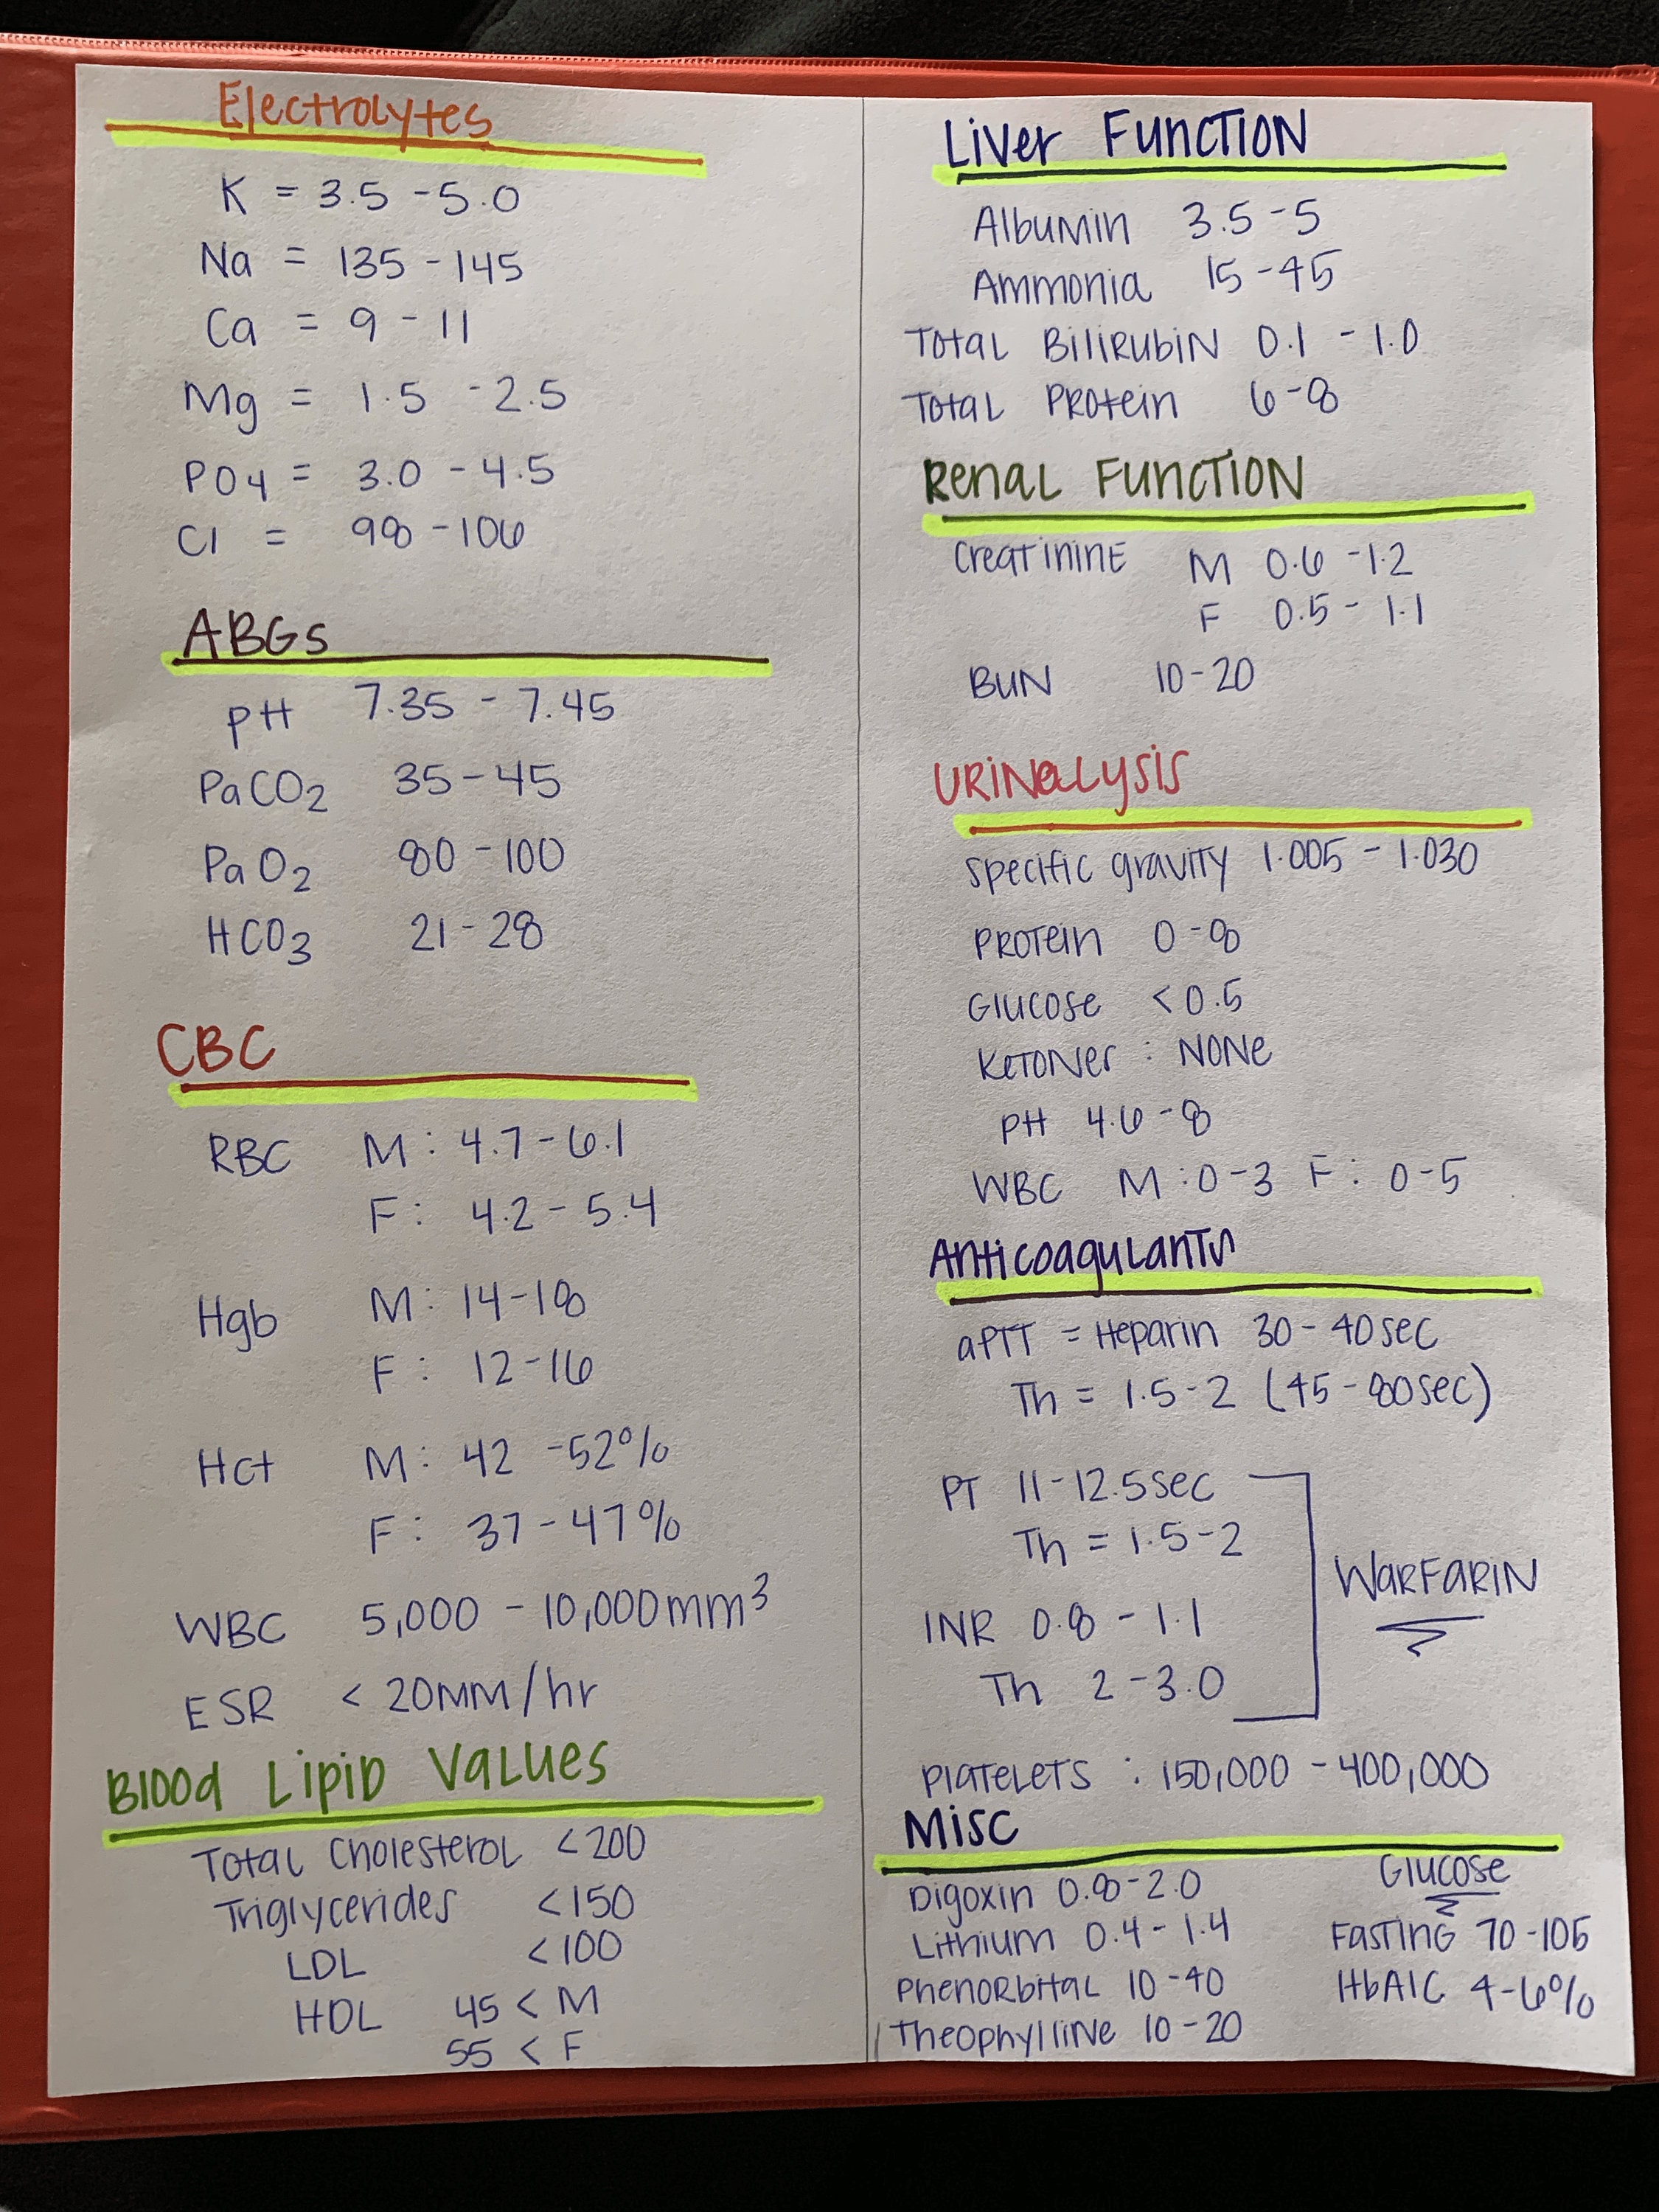 Electrolytes
K = 3.5 - 5.0
Na = 135 - 145
Ca = 9 - 11
Mg = 1.5 - 2.5
PO4 = 3.0 - 4.5
Cl = 98 - 106
ABGs
pH 7.35 - 7.45
PaCO2 35 - 45
PaO2 80 - 100
HCO3 21 - 28
CBC
RBC M: 4.7 - 6.1
F: 4.2 - 5.4
Hgb M: 14 - 18
F: 12 - 16
Hct M: 42 - 52%
F: 37 - 47%
WBC 5,000 - 10,000mm3
ESR < 20MM/hr
Blood Lipid Values
Total Cholesterol < 200
Triglycerides < 150
LDL < 100
HDL 45 < M
55 < F
Liver Function
Albumin 3.5 - 5
Ammonia 15 - 45
Total Bilirubin 0.1 - 1.0
Total Protein 6 - 8
Renal Function
Creatinine M 0.6 - 1.2
F 0.5 - 1.1
BUN 10 - 20
Urinalysis
Specific gravity 1.005 - 1.030
Protein 0 - 8
Glucose < 0.5
Ketones : None
pH 4.6 - 8
WBC M: 0 - 3 F: 0 - 5
Anticoagulants
aPTT = Heparin 30 - 40sec
Th = 1.5 - 2 (45 - 80sec)
PT 11 - 12.5sec
Th = 1.5 - 2
Warfarin
INR 0.8 - 1.1
Th 2 - 3.0
Platelets : 150,000 - 400,000
Misc
Digoxin 0.8 - 2.0
Lithium 0.4 - 1.4
Phenorbital 10 - 40
Theophylline 10 - 20
Glucose
Fasting 70 - 105
HbA1C 4 - 6%